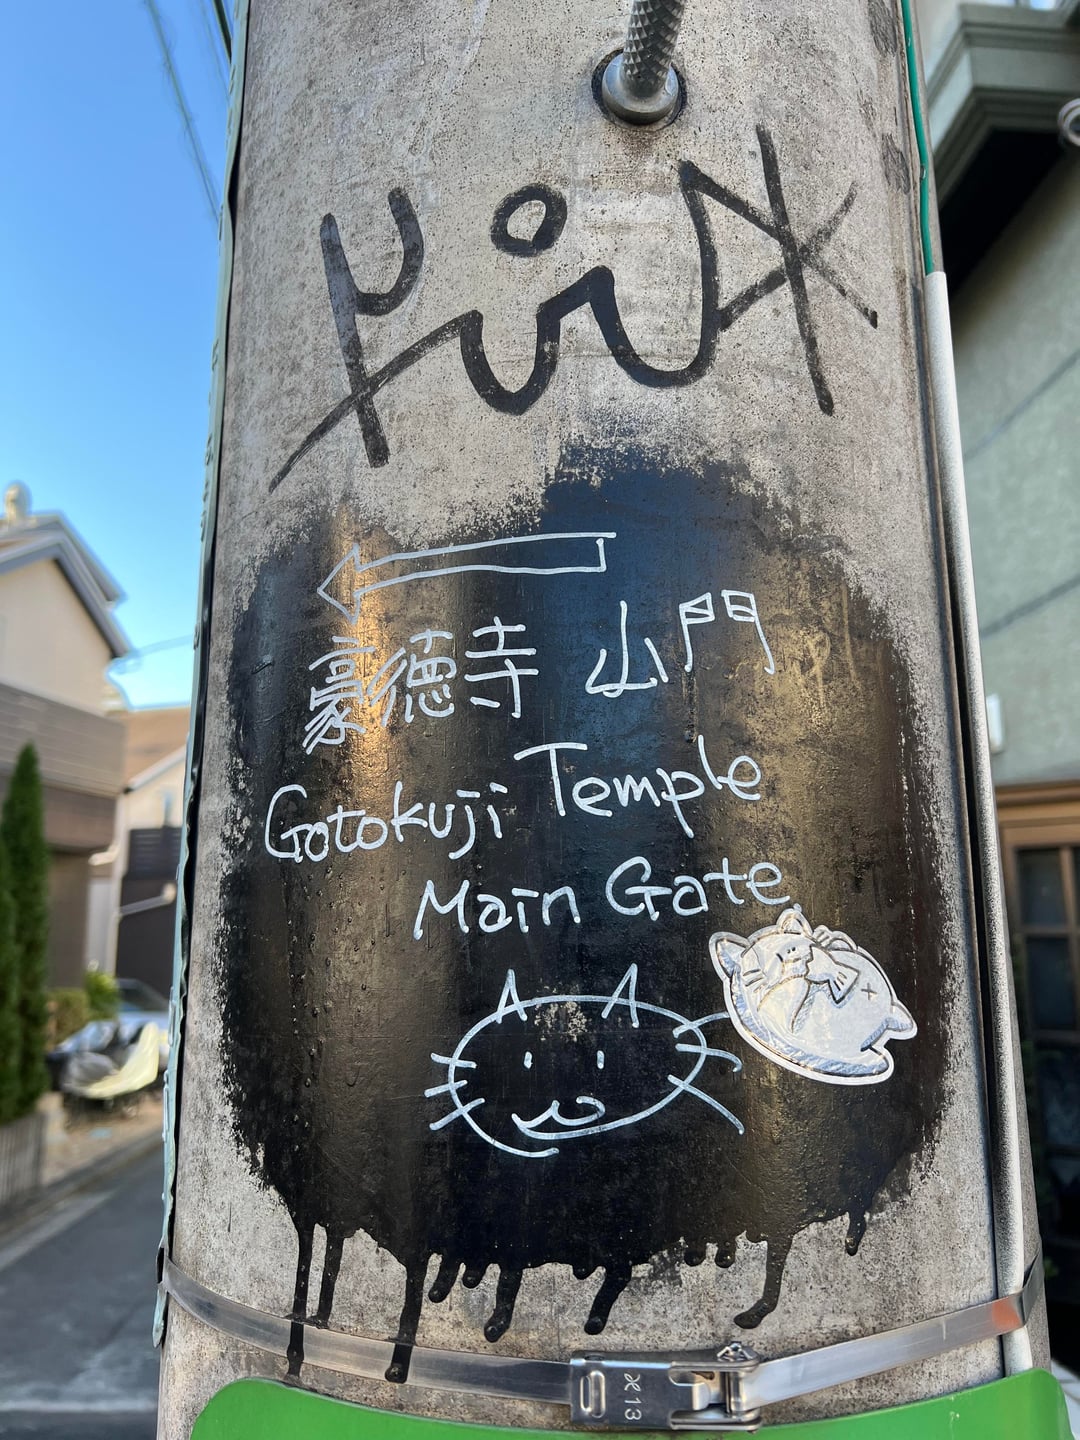 豪徳寺 山門
Gotokuji Temple
Main Gate